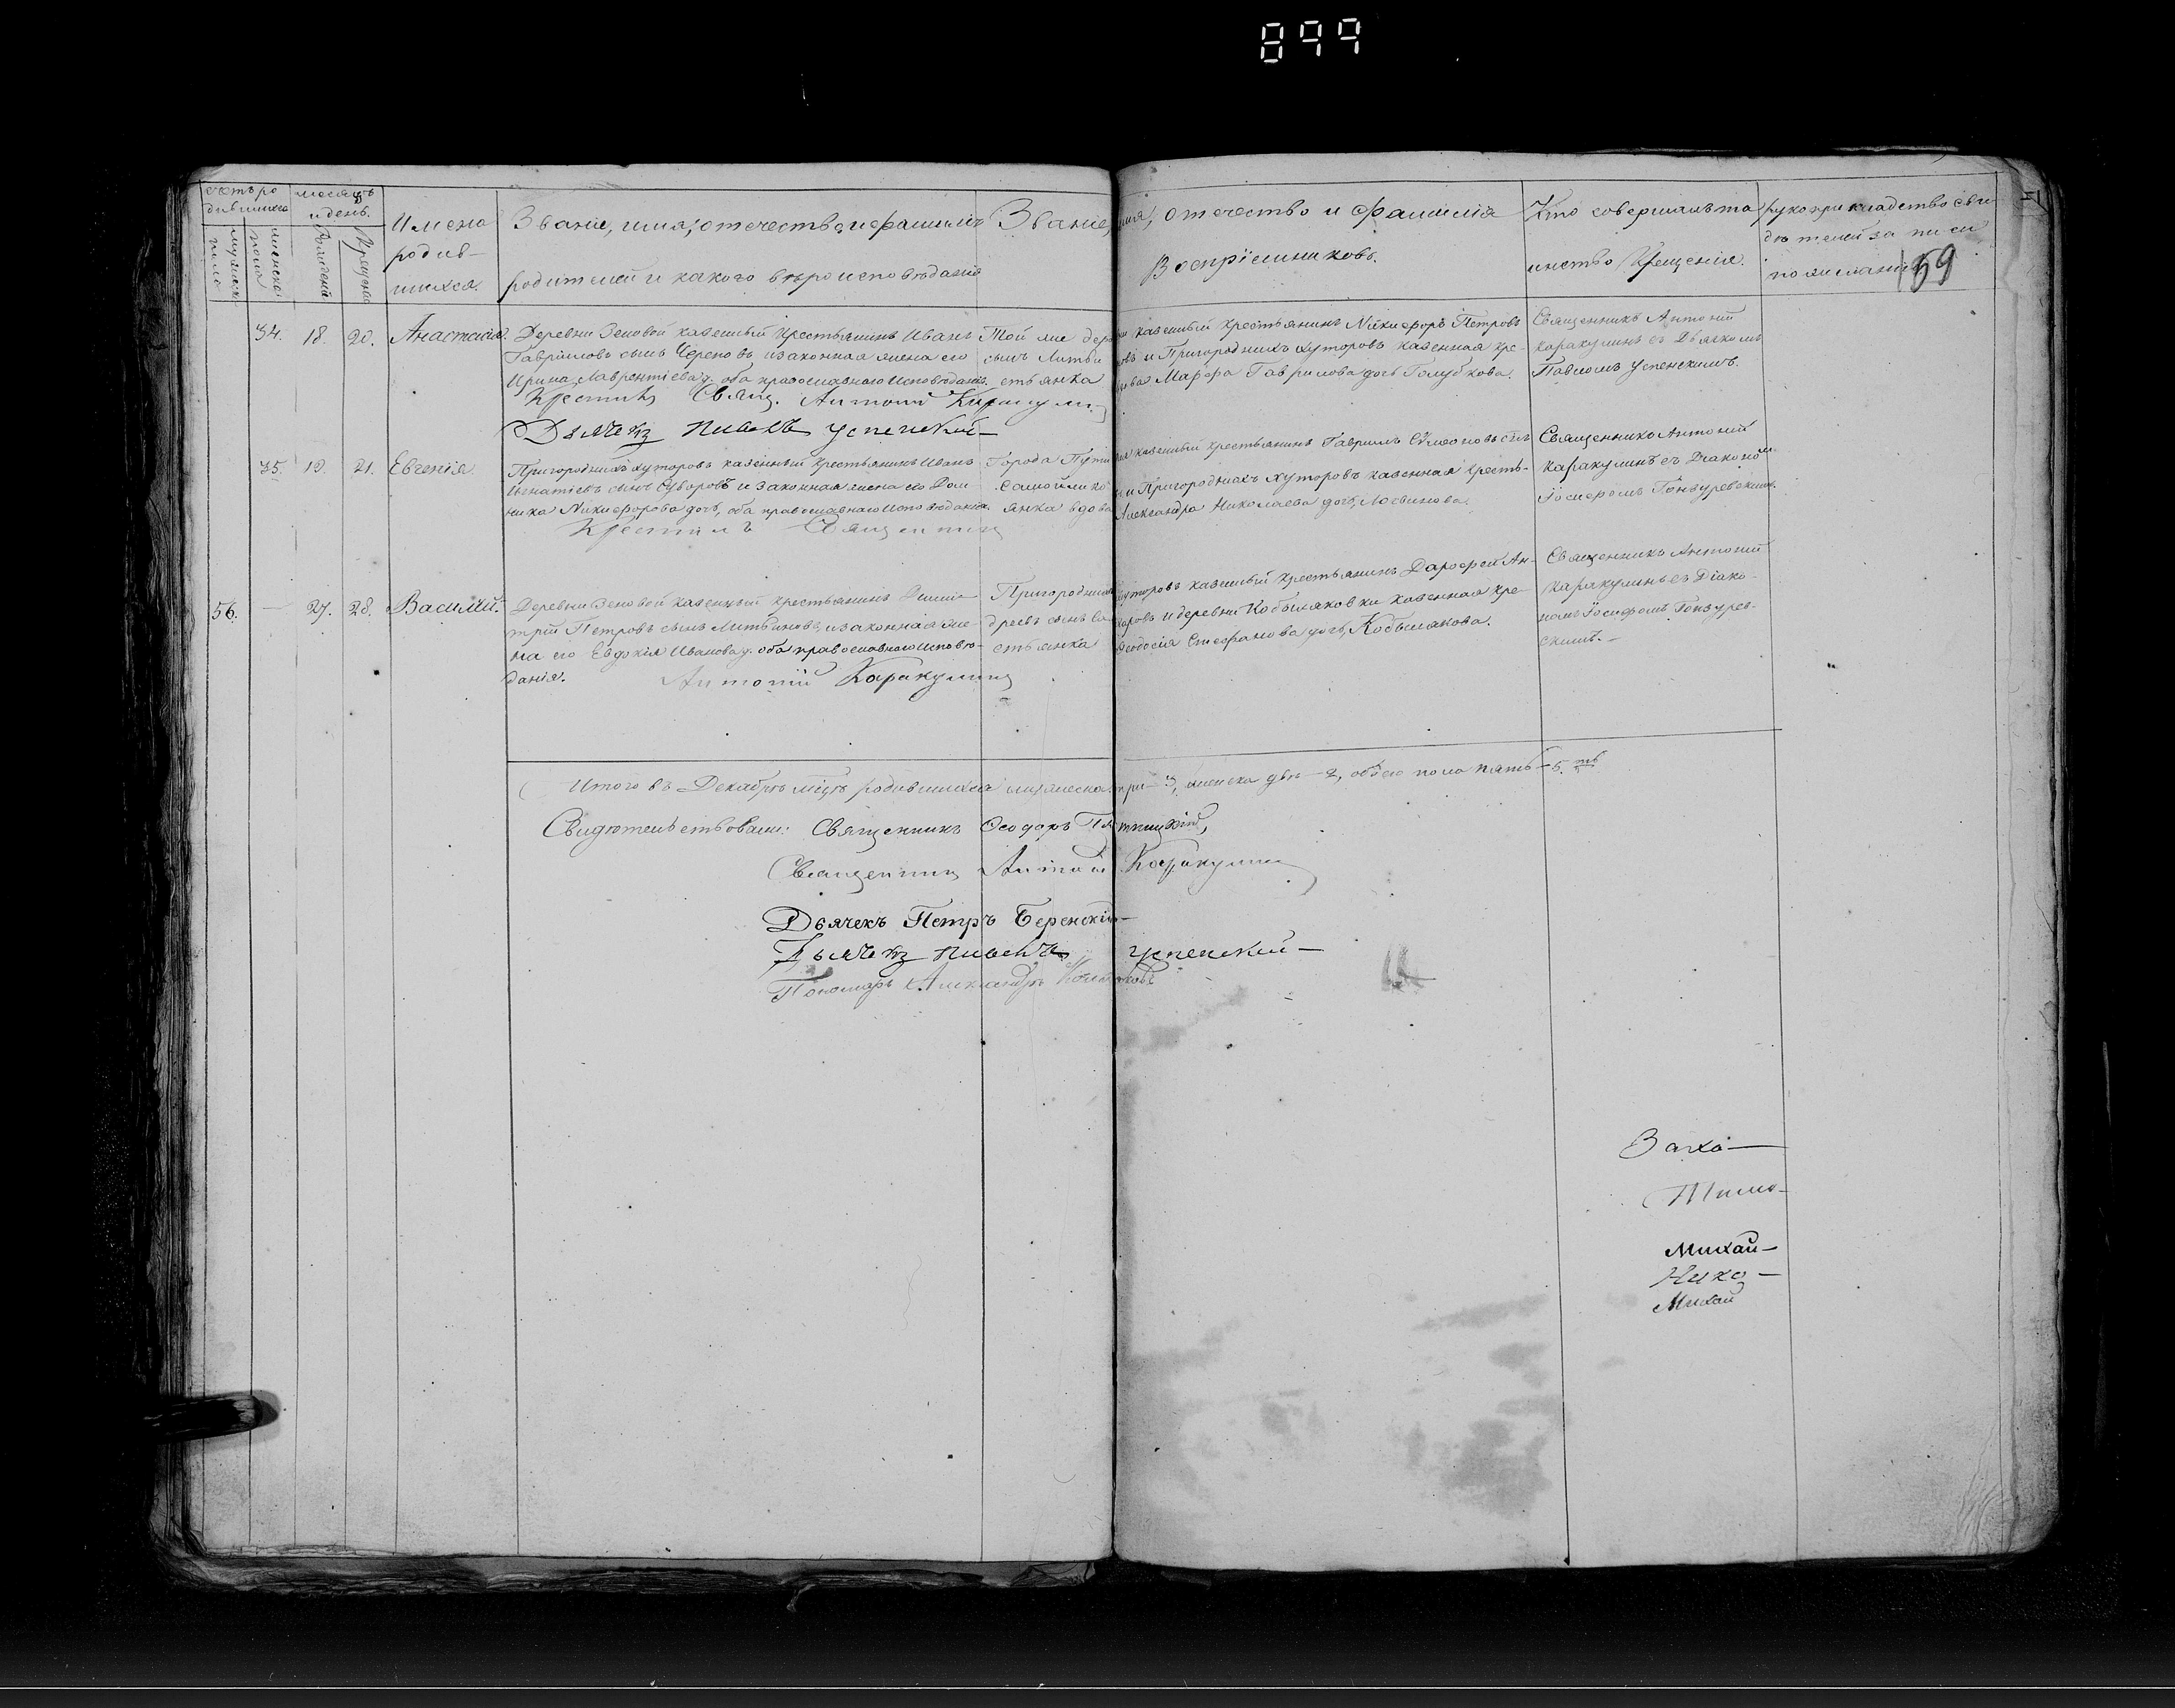 899
159
счетъ ро
дившихся
мѣсяцъ
и день.
мужеска
пола
женска
пола
Рожденія
Крещенія
Имена
родив-
шихся.
Званіе, имя, отечество и фамилія
родителей и какого вѣроисповѣданія
Званіе, имя, отечество и фамилія
Воспріемниковъ.
Кто совершалъ та
инство Крещенія.
рукоприкладство сви
дѣтелей за писи
по желанію
34. 18. 20. Анастасія.
Деревни Зеновой казенный крестьянинъ Иванъ
Гавріиловъ сынъ Череповъ и законная жена его
Ирина Лаврентіева д. оба православнаго исповѣданія.
Той же дер
казенный крестьянинъ Никифоръ Петровъ
сынъ Литви
овъ и Пригороднихъ хуторовъ казенная кре-
стьянка
Марфа Гаврилова дочь Голубкова.
Священникъ Антоній
Каракулинъ съ Дьячкомъ
Павломъ Успенскимъ.
Крестилъ Свящ. Антоній Каракулинъ
Дьячекъ Павелъ Успенскій
35. 19. 21. Евгенія.
Пригороднихъ хуторовъ казенный крестьянинъ Иванъ
Игнатіевъ сынъ Суворовъ и законная жена его Дом
ника Никифорова дочь, оба православнаго исповѣданія.
Города Пути
казенный крестьянинъ Гавріилъ Симеоновъ сынъ
Самойлико
и Пригороднихъ хуторовъ казенная кресть-
янка вдова
Александра Николаева дочь, Логвинова.
Священникъ Антоній
Каракулинъ съ Діакономъ
Іосифомъ Гонзуревскимъ.
Крестилъ Священникъ
56. — 27. 28. Василій.
Деревни Зеновой казенный крестьянинъ Дими-
трій Петровъ сынъ Литвиновъ, и законная же-
на его Евдокія Иванова д. оба православнаго исповѣ-
данія.
Пригородних
хуторовъ казенный крестьянинъ Дарофей Ан-
дреевъ сынъ
и деревни Кобылаковки казенная кре-
стьянка
Феодосія Стефанова дочь, Кобылакова.
Священникъ Антоній
Каракулинъ съ Діако-
номъ Іосифомъ Гонзурев-
скимъ.
Антоній Каракулинъ
Итого въ Декабрѣ мцѣ родившихся мужеска три 3, женска двѣ 2, обоего пола пять 5.
Свидѣтельствовали: Священникъ Ѳеодоръ Пятницкій,
Священникъ Антоній Каракулинъ
Дьячекъ Петръ Беренскій
Дьячекъ Павелъ Успенскій
Пономарь Александръ
Заха
Тимо-
Михай-
Нико-
Михай